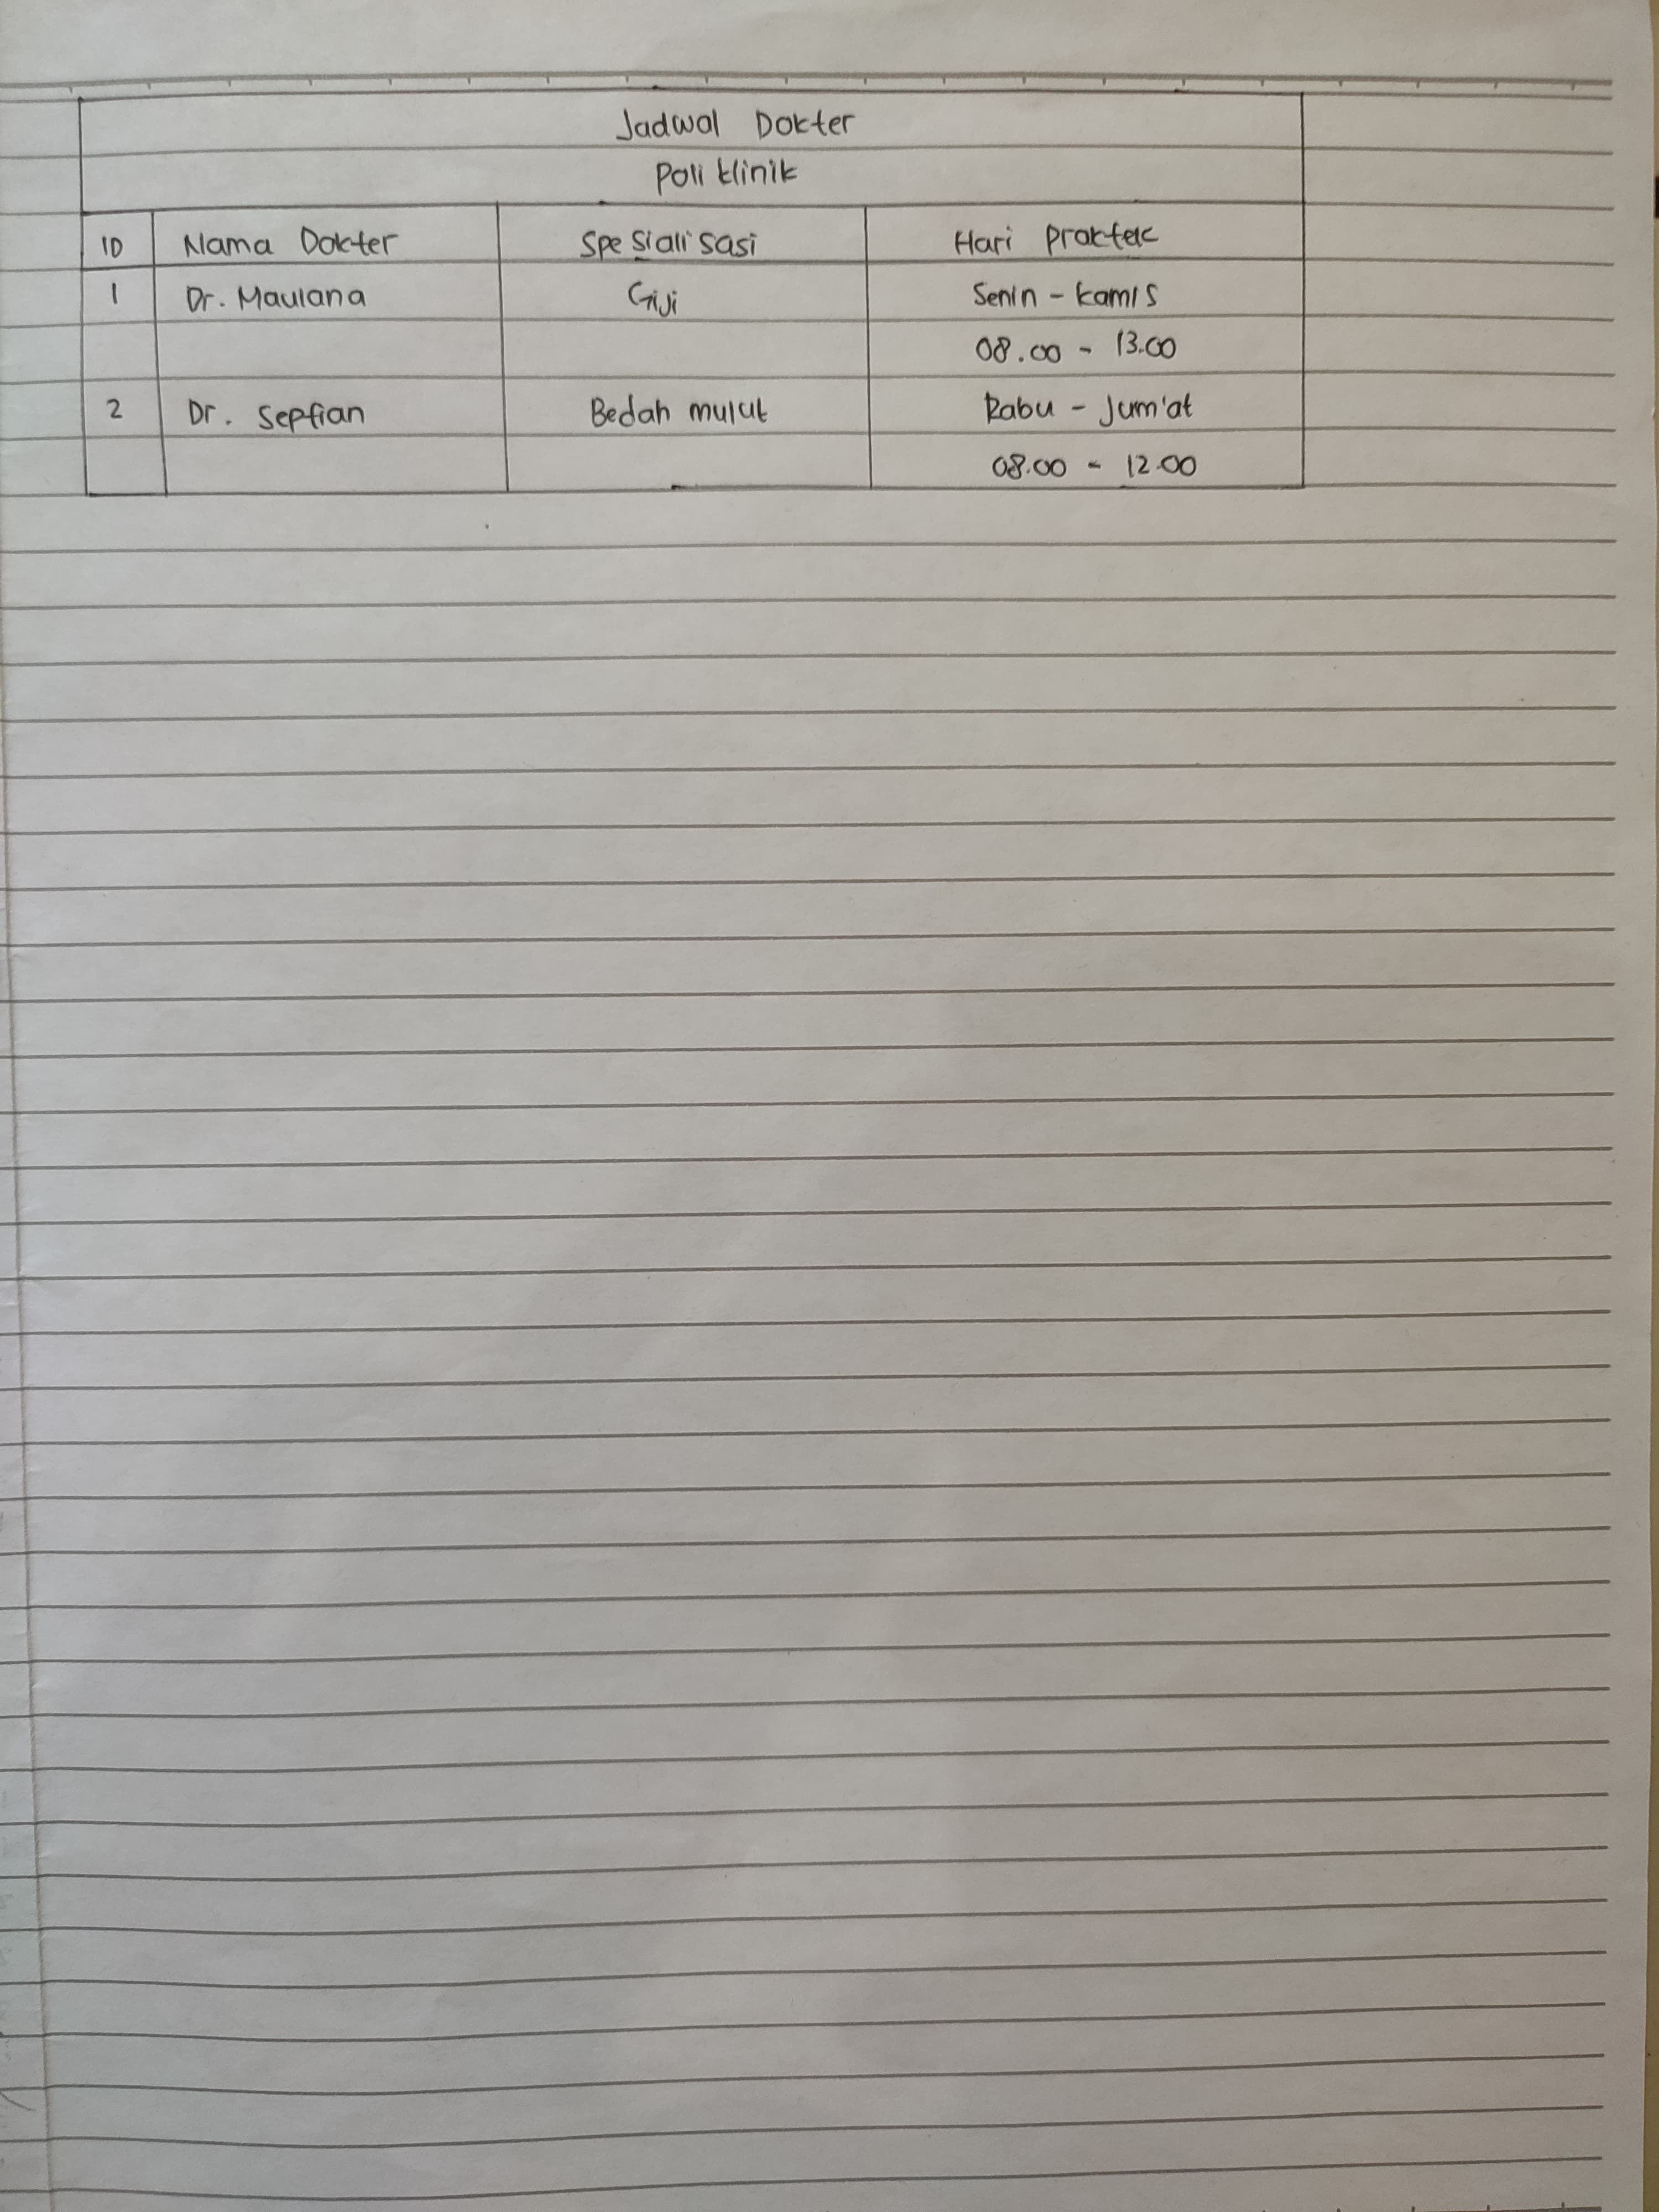 Jadwal Dokter
Poli klinik
ID Nama Dokter Spesialisasi Hari Praktek
1 Dr. Maulana Giji Senin - kamis
08.00 - 13.00
2 Dr. Septian Bedah mulut Rabu - Jum'at
08.00 - 12.00